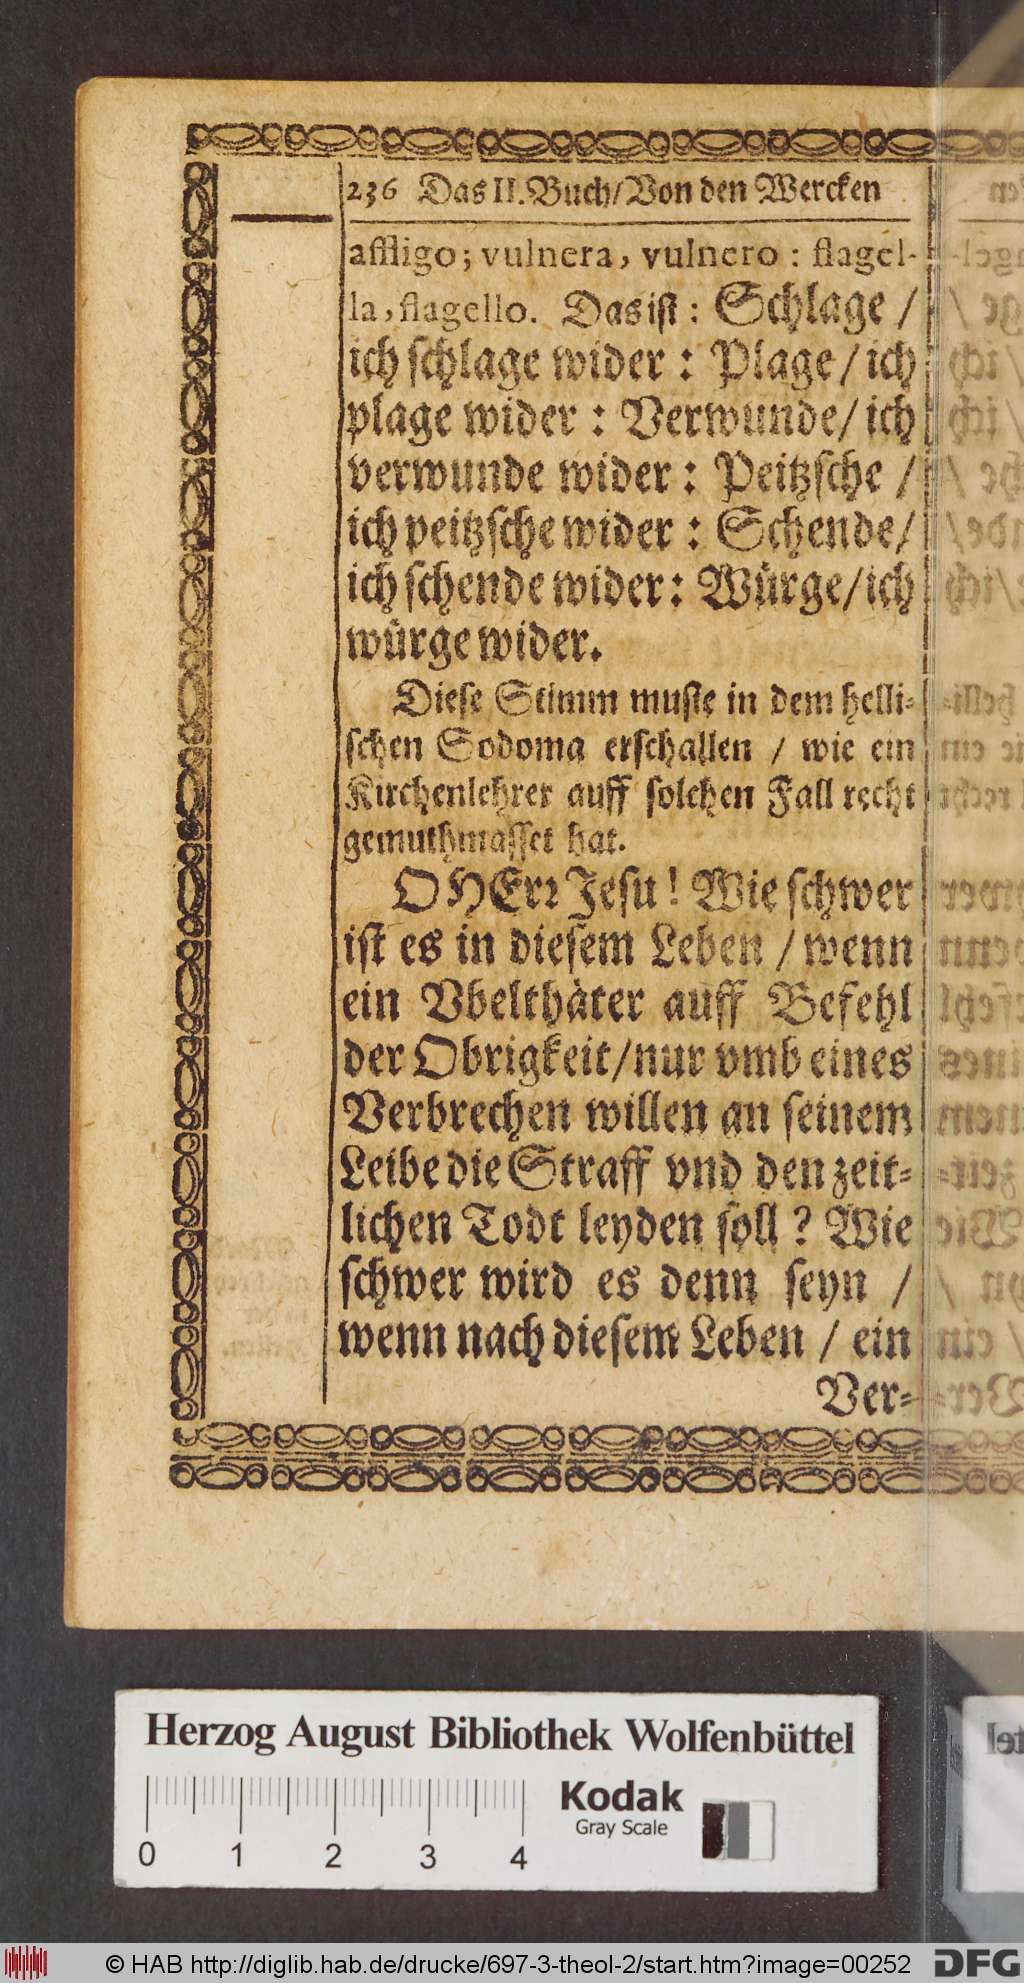 236 Das II. Buch/Von den Wercken
affligo; vulnera, vulnero : flagel-
la, flagello. Das ist : Schlage /
ich schlage wider : Plage/ich
plage wider : Verwunde/ ich
verwunde wider : Peitzsche /
ich peitzsche wider : Schende/
ich schende wider : Würge/ich
würge wider.
Diese Stimm muste in dem helli-
schen Sodoma erschallen / wie ein
Kirchenlehrer auff solchen Fall recht
gemuthmasset hat.
O HErr Jesu! Wie schwer
ist es in diesem Leben / wenn
ein Vbelthäter auff Befehl
der Obrigkeit/nur vmb eines
Verbrechen willen an seinem
Leibe die Straff vnd den zeit-
lichen Todt leyden soll ? Wie
schwer wird es denn seyn /
wenn nach diesem Leben / ein
Ver-
Herzog August Bibliothek Wolfenbüttel
Kodak
Gray Scale
0 1 2 3 4
© HAB http://diglib.hab.de/drucke/697-3-theol-2/start.htm?image=00252
DFG